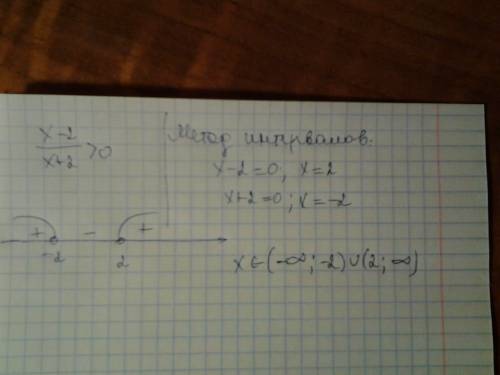 x-2
x+2 >0
Метод интервалов.
x-2=0; x=2
x+2=0; x=-2
+ - +
-2 2
x∈(-∞;-2)∪(2;∞)